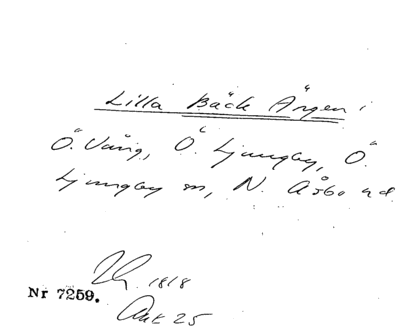 Lilla Bäck Ängen i
Ö. Vång, Ö. Ljungby, Ö.
Ljungby sn, N. Åsbo hd.
1818
Nr 7259.
Akt 25